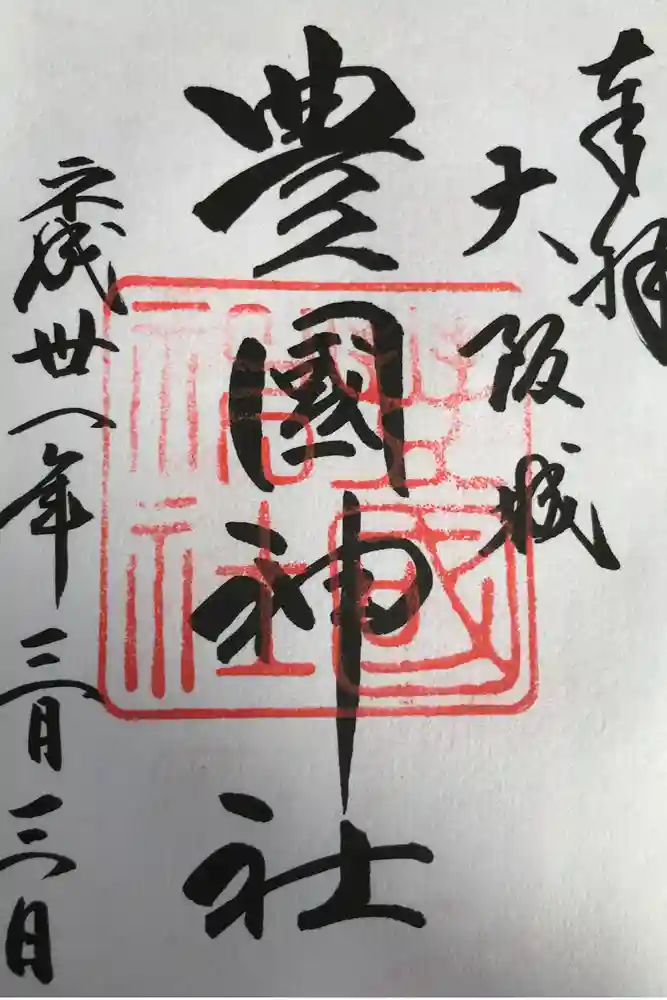 奉拝
大阪城
豊國神社
平成廿八年三月三日
豊國神社